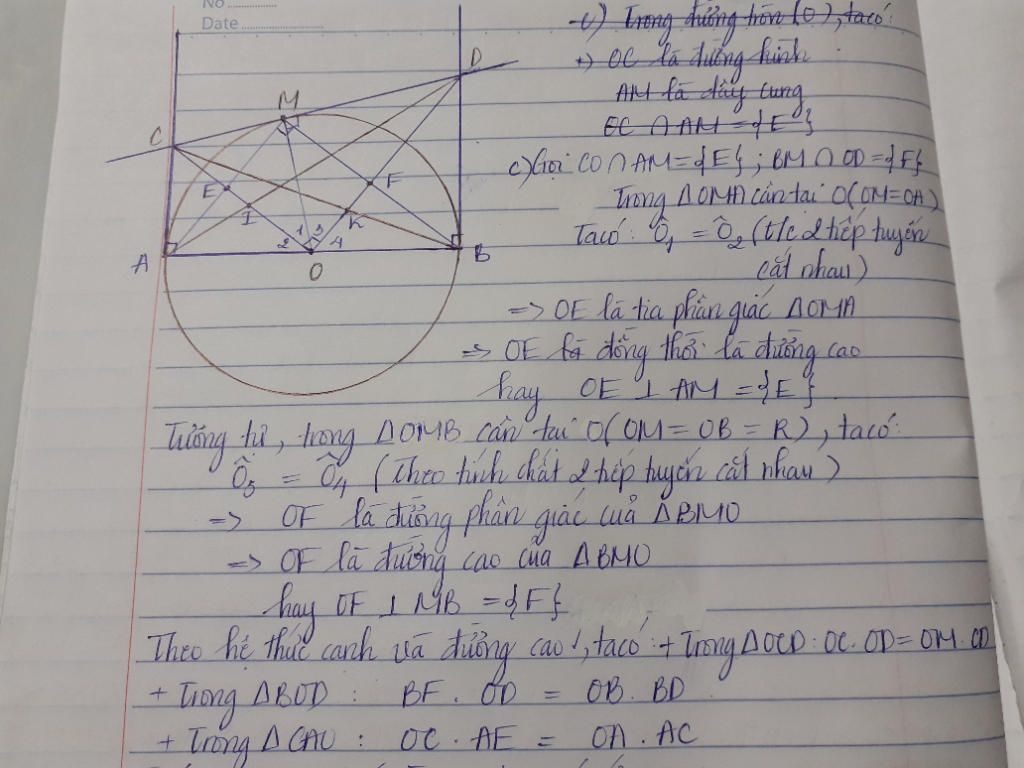 No
Date
c) Trong đường tròn (O), ta có:
+) OC là đường kính
AM là dây cung
EC ∩ AM = {E}
c) Gọi CO ∩ AM = {E} ; BM ∩ OD = {F}
Trong ΔOMA cân tại O (OM = OA)
Ta có: Ô₁ = Ô₂ (t/c 2 tiếp tuyến
cắt nhau)
=> OE là tia phân giác ΔOMA
=> OE là đồng thời là đường cao
hay OE ⊥ AM = {E}
Tương tự, trong ΔOMB cân tại O (OM = OB = R), ta có:
Ô₃ = Ô₄ (Theo tính chất 2 tiếp tuyến cắt nhau)
=> OF là đường phân giác của ΔBMO
=> OF là đường cao của ΔBMO
hay OF ⊥ MB = {F}
Theo hệ thức cạnh và đường cao, ta có: + Trong ΔOCD: OC . OD = OM . CD
+ Trong ΔBOD : BF . OD = OB . BD
+ Trong ΔCAO : OC . AE = OA . AC
D
M
C
E
F
I
K
1
2
3
4
A
O
B